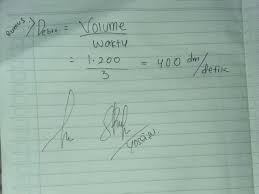 Rumus > Debit = Volume / Waktu
= 1.200 / 3 = 400 dm/detik